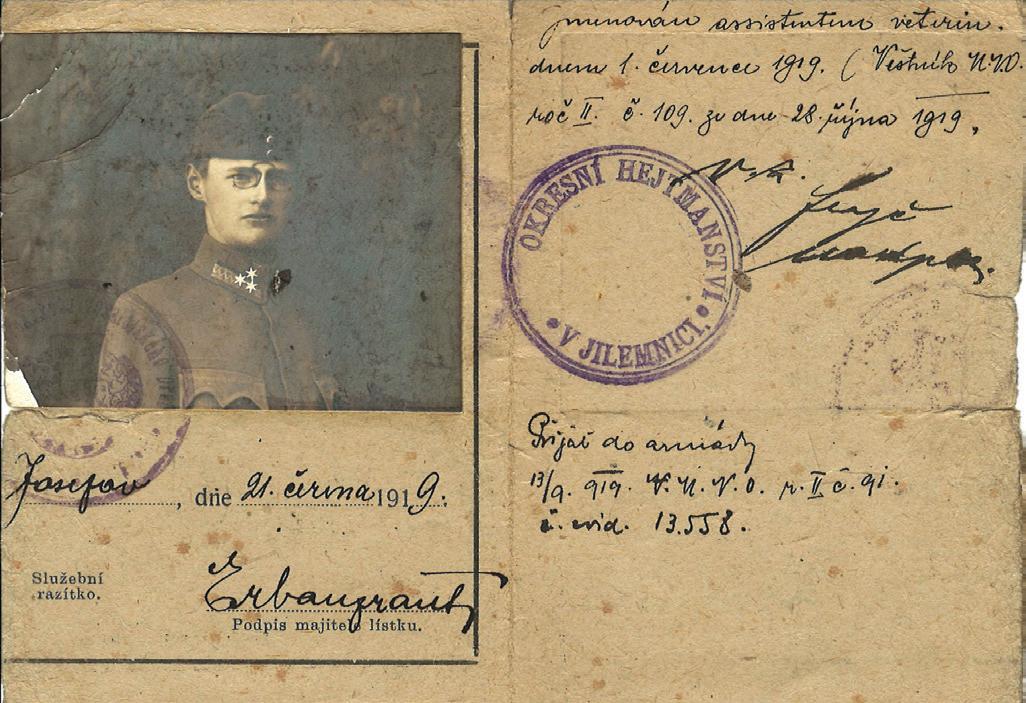 Josefov, dne 21. června 1919.
Služební
razítko.
Podpis majitele lístku.
jmenován assistentem veterin.
dnem 1. července 1919. (Věstník
roč II. č. 109. ze dne 28. října 1919.
OKRESNÍ HEJTMANSTVÍ
V JILEMNICI.
Přijat do armády
13/9. 919. V. N. V. O. r. II č. 91.
č. evid. 13.558.